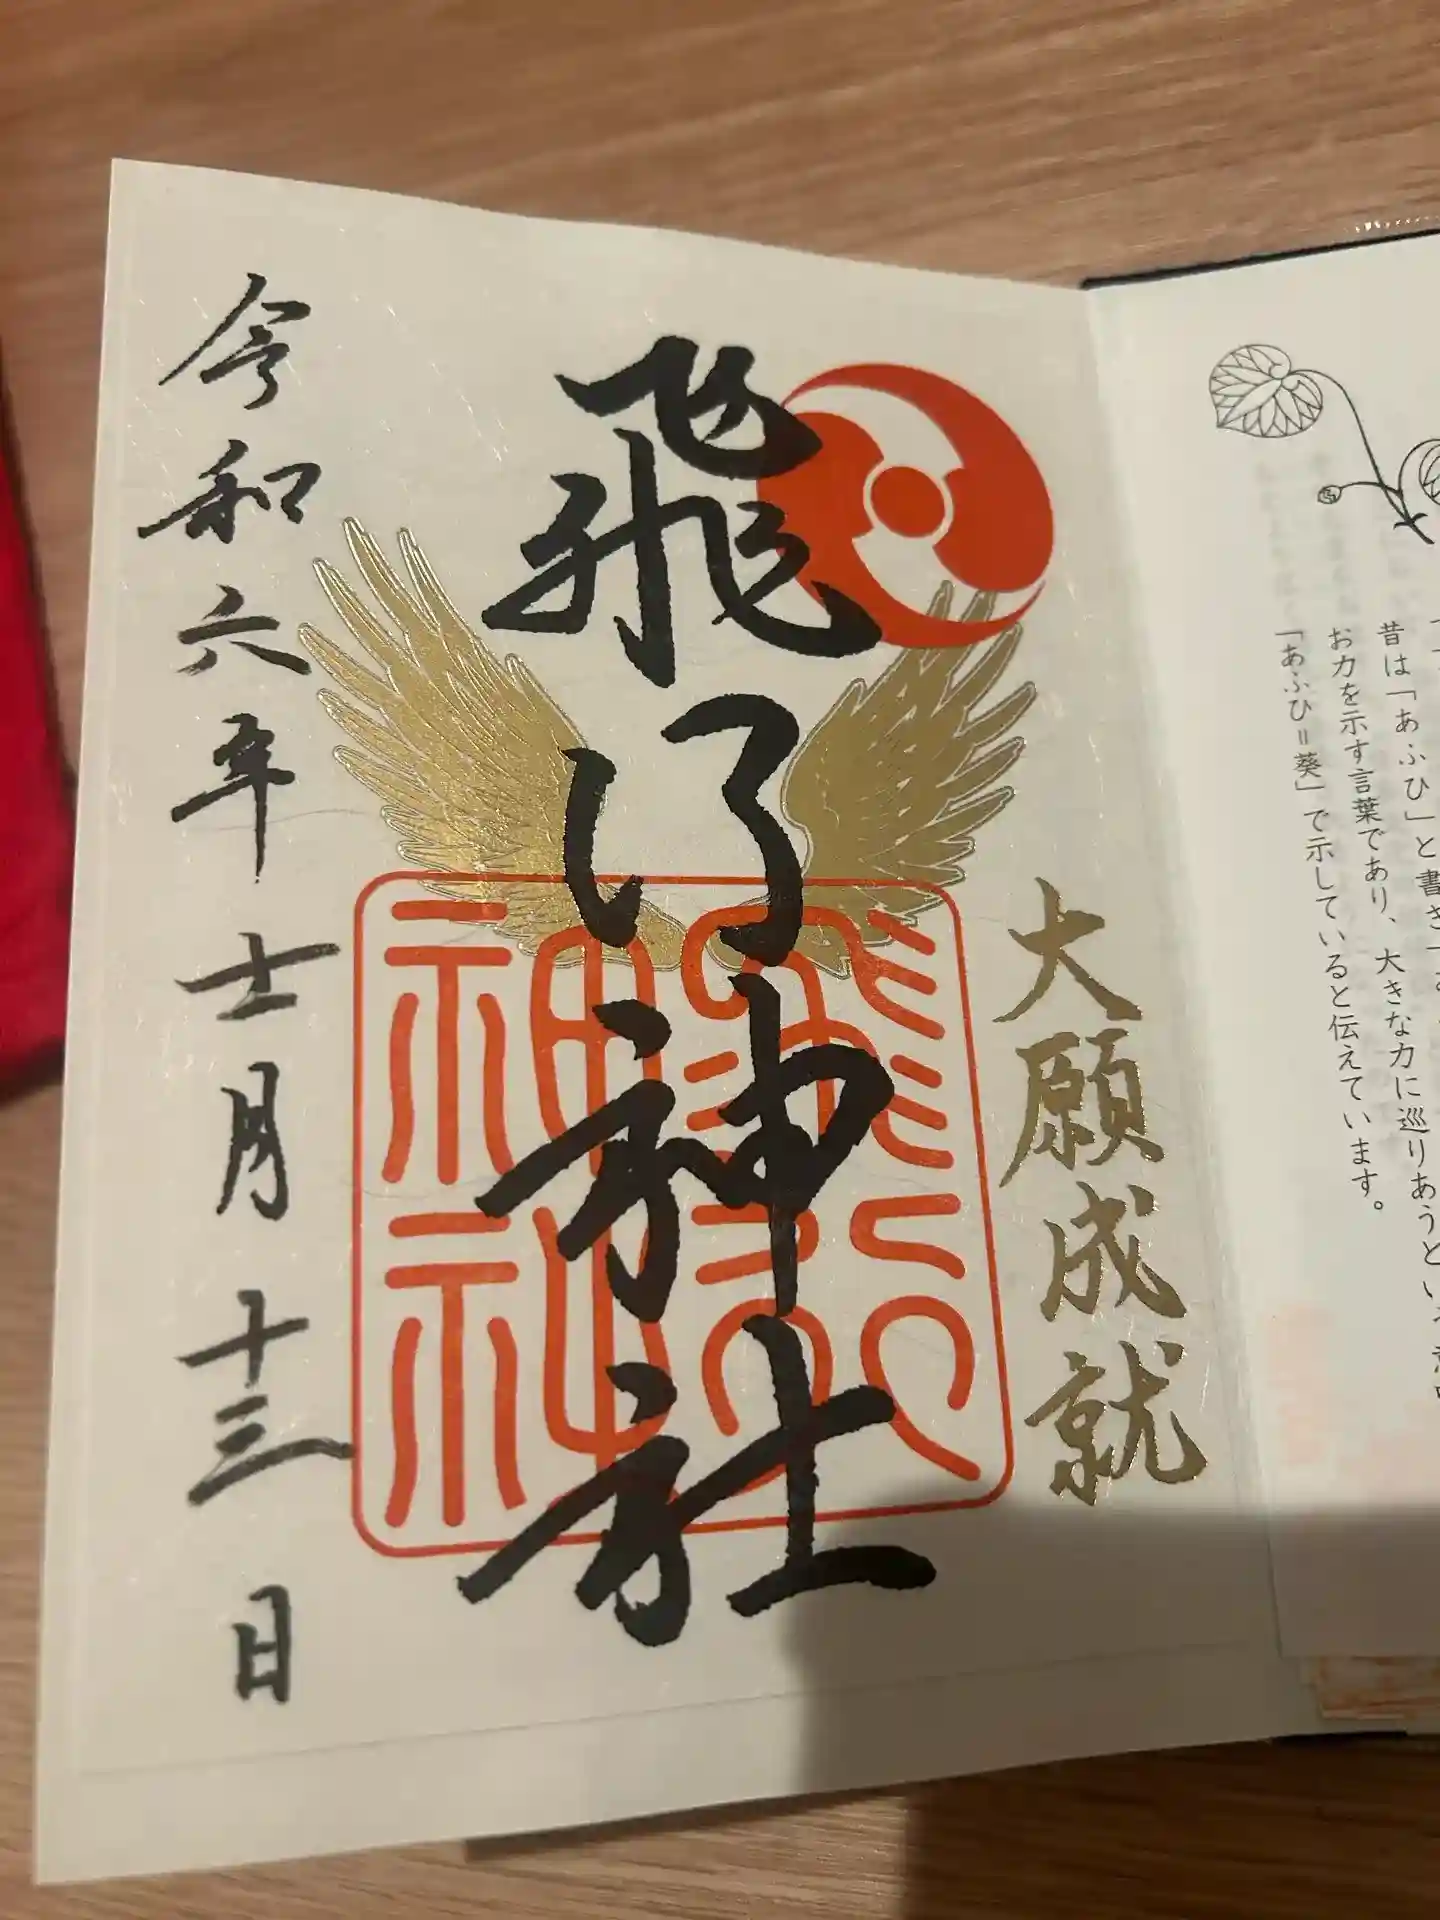 大願成就
飛行神社
飛行神社
令和六年十二月十三日
昔は「あふひ」と書き
お力を示す言葉であり、大きな力に巡りあうという
「あふひ=葵」で示していると伝えています。